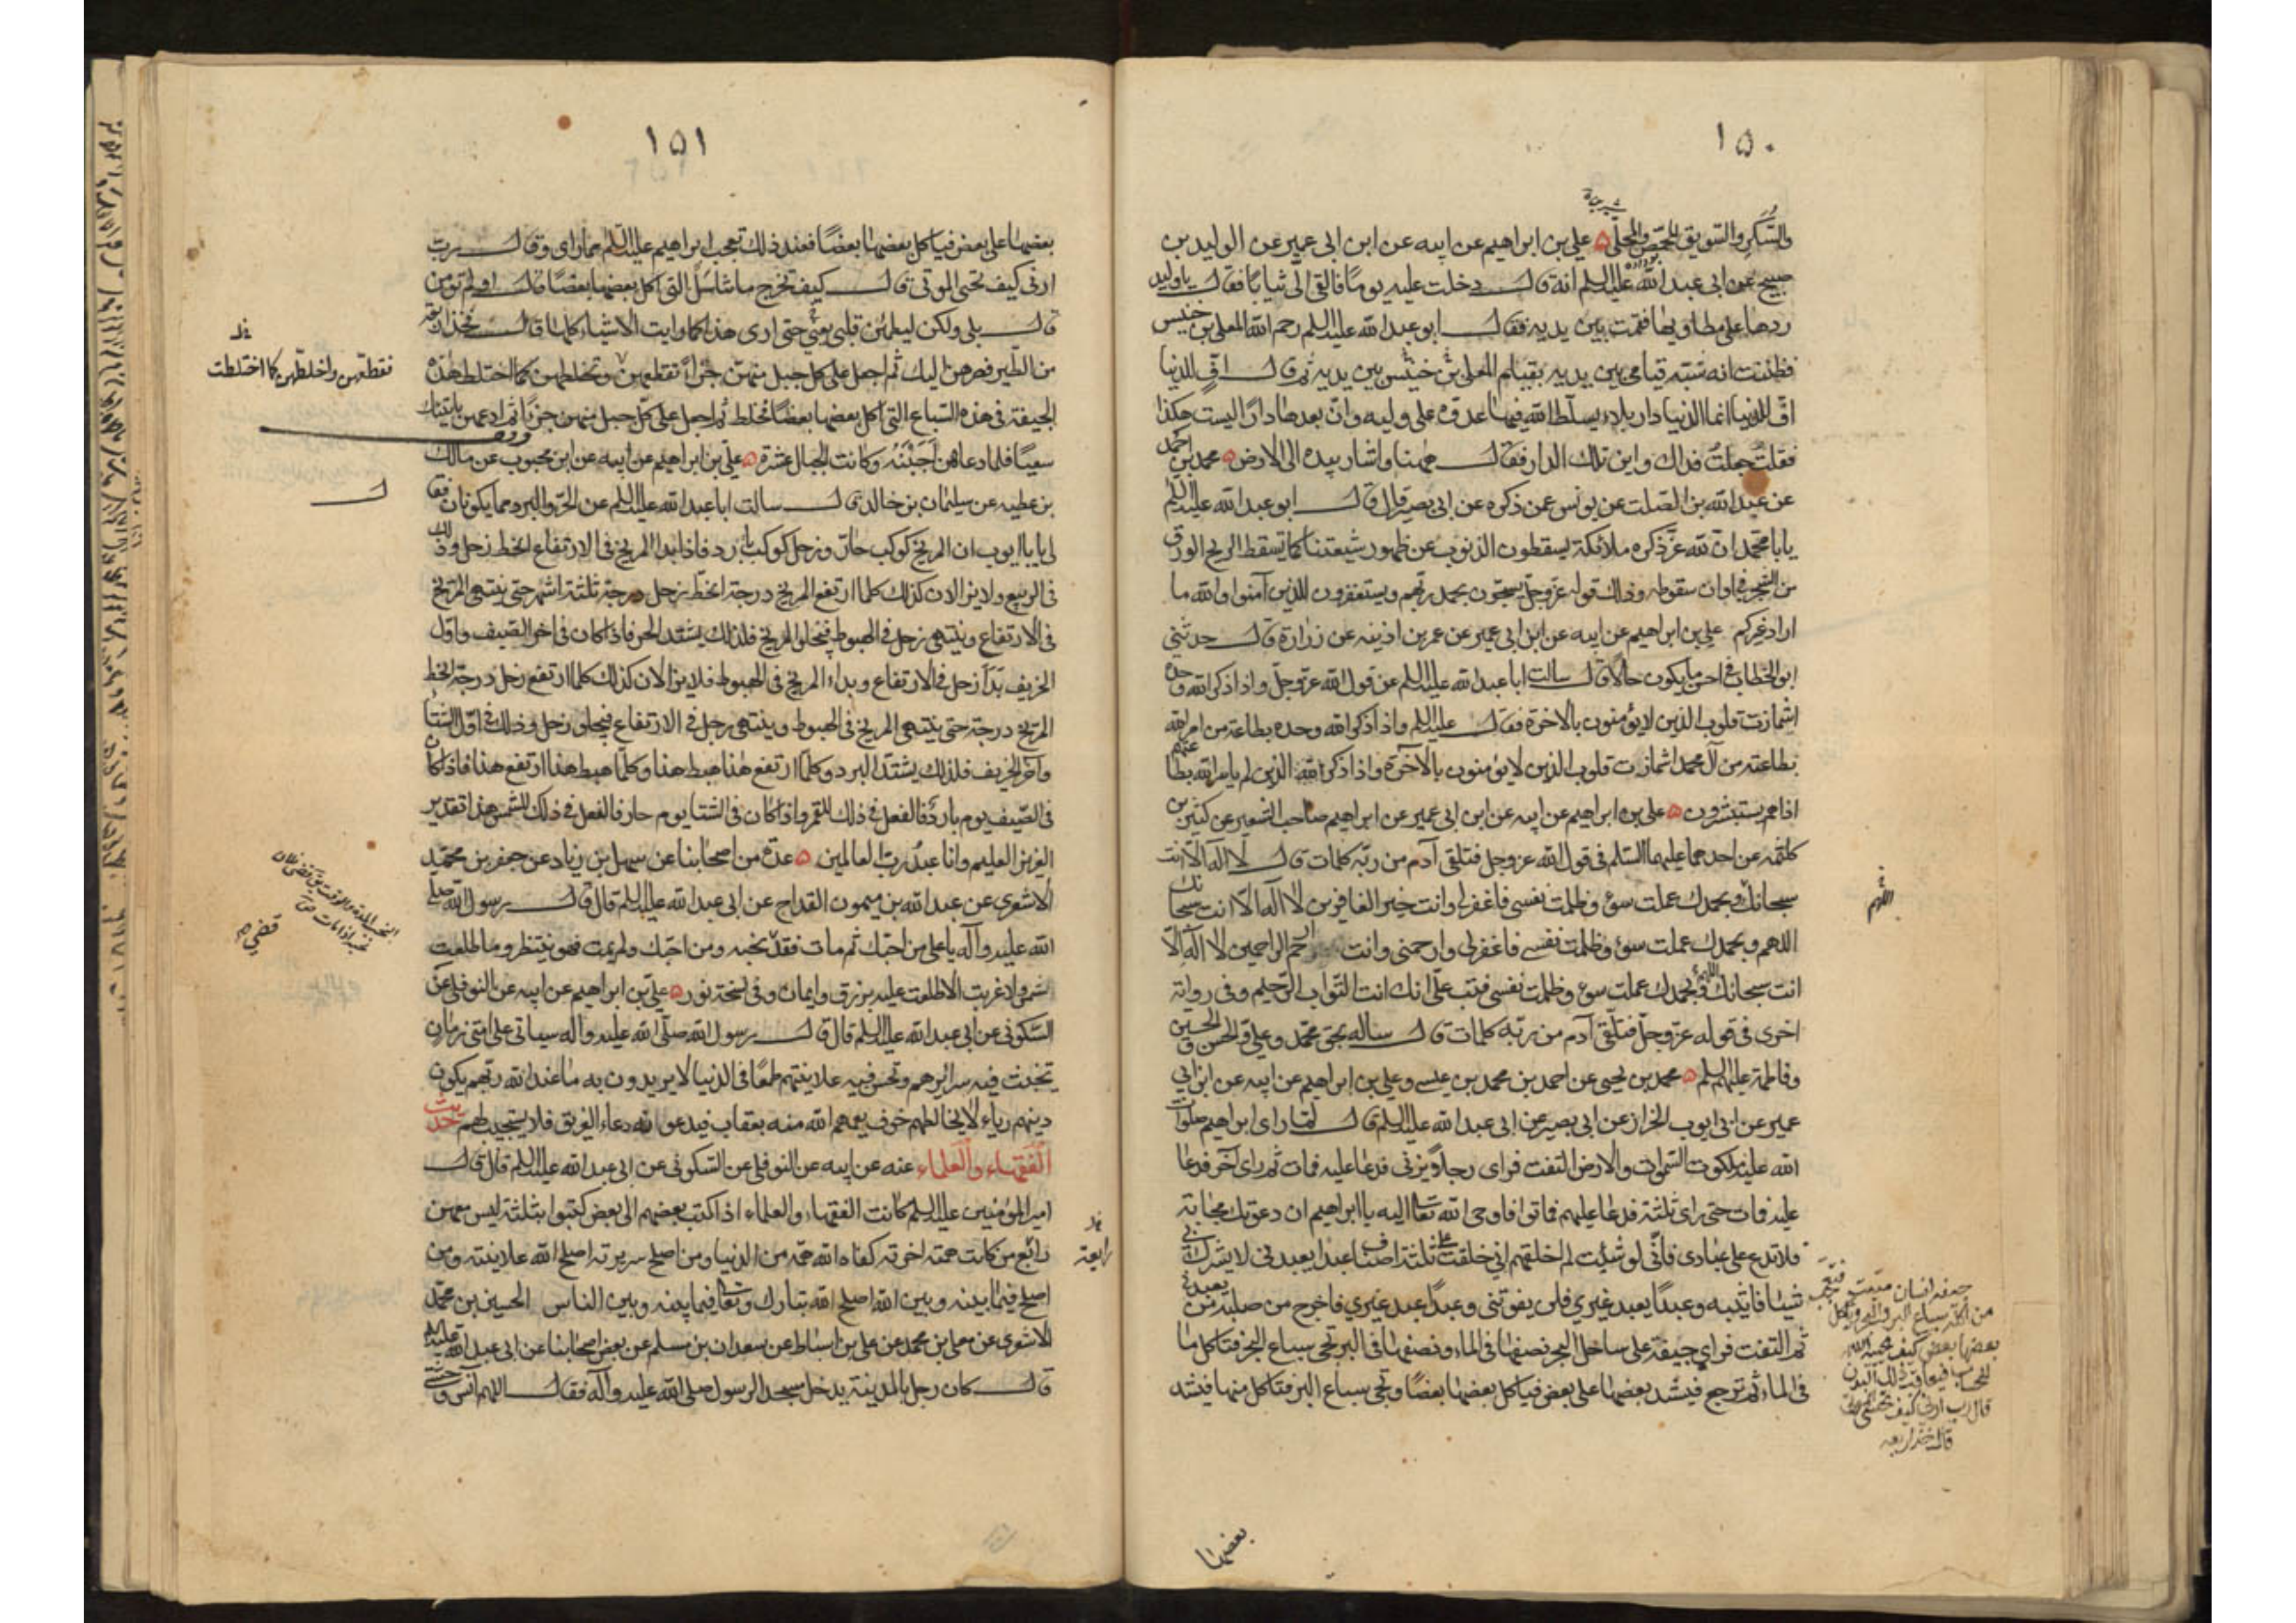 ١٥٠
والسكر والسويق للحمص والمحلى ه علي بن ابراهيم عن ابيه عن ابن ابي عمير عن الوليد بن
صبيح عن ابي عبد الله عليه السلم انه قال دخلت عليه يوما فالقى الى ثيابا فقال يا وليد
ردها على مطاويها فقمت بين يديه فقال ابو عبد الله عليه السلم رحم الله المعلى بن خنيس
فظننت انه شبه قيامي بين يديه بقيام المعلى بن خنيس بين يديه ثم قال اف للدنيا
اف للدنيا انما الدنيا دار بلاء يسلط الله فيها عدوه على وليه وان بعدها دارا ليست هكذا
فقلت جعلت فداك واين تلك الدار فقال ههنا واشار بيده الى الارض ه محمد بن احمد
عن عبد الله بن الصلت عن يونس عمن ذكره عن ابي بصير قال قال ابو عبد الله عليه السلم
يابا محمد ان لله عز ذكره ملائكة يسقطون الذنوب عن ظهور شيعتنا كما تسقط الريح الورق
من الشجر في اوان سقوطه وذلك قوله عز وجل يسبحون بحمد ربهم ويستغفرون للذين آمنوا والله ما
اراد غيركم علي بن ابراهيم عن ابيه عن ابن ابي عمير عن عمر بن اذينه عن زرارة قال حدثني
ابو الخطاب في احسن ما يكون حالا قال سالت ابا عبد الله عليه السلم عن قول الله عز وجل واذا ذكر الله وحده
اشمازت قلوب الذين لا يؤمنون بالاخرة فقال عليه السلم واذا ذكر الله وحده بطاعة من امر الله
بطاعته من آل محمد اشمازت قلوب الذين لا يؤمنون بالآخرة واذا ذكر الذين لم يامر الله بطاعتهم
اذا هم يستبشرون ه علي بن ابراهيم عن ابيه عن ابن ابي عمير عن ابراهيم صاحب الشعير عن كثير بن
كلثمه عن احدهما عليهما السلم في قول الله عز وجل فتلقى آدم من ربه كلمات قال لا اله الا انت
سبحانك وبحمدك عملت سوء وظلمت نفسي فاغفر لي وانت خير الغافرين لا اله الا انت سبحانك
اللهم وبحمدك عملت سوء وظلمت نفسي فاغفر لي وارحمني وانت ارحم الراحمين لا اله الا
انت سبحانك اللهم وبحمدك عملت سوء وظلمت نفسي فتب علي انك انت التواب الرحيم وفي رواية
اخرى في قوله عز وجل فتلقى آدم من ربه كلمات قال ساله بحق محمد وعلي والحسن والحسين
وفاطمة عليهم السلم ه محمد بن يحيى عن احمد بن محمد بن عيسى وعلي بن ابراهيم عن ابيه عن ابن ابي
عمير عن ابي ايوب الخزاز عن ابي بصير عن ابي عبد الله عليه السلم قال لما راى ابراهيم صلوات
الله عليه ملكوت السموات والارض التفت فراى رجلا يزني فدعا عليه فمات ثم راى آخر فدعا
عليه فمات حتى راى ثلثة فدعا عليهم فماتوا فاوحى الله تعا اليه يا ابراهيم ان دعوتك مجابة
فلا تدع على عبادى فاني لو شئت لم اخلقهم اني خلقت خلقي على ثلثة اصناف عبدا يعبدني لا يشرك بي
شيئا فاثيبه وعبدا يعبد غيري فلن يفوتني وعبدا عبد غيري فاخرج من صلبه من يعبدني
ثم التفت فراي جيفة على ساحل البحر نصفها في الماء ونصفها في البر تجي سباع البحر فتاكل ما
في الماء ثم ترجع فيشد بعضها على بعض فياكل بعضها بعضا وتجي سباع البر فتاكل منها فيشد
اللهم
من اكله سباع البر والبحر وياكل
بعضها بعض كيف
قال رب ارني كيف تحيي الموتى
قال فخذ اربعه
بعضها
١٥١
بعضها على بعض فياكل بعضها بعضا فعند ذلك تعجب ابراهيم عليه السلم مما راى وقال رب
ارني كيف تحيى الموتى قال كيف تخرج ما تناسل التي اكل بعضها بعضا قال اولم تؤمن
قال بلى ولكن ليطمئن قلبي يعني حتى ارى هذا كما رايت الاشياء كلها قال فخذ اربعة
من الطير فصرهن اليك ثم اجعل على كل جبل منهن جزءا تقطعهن وتخلطهن كما اختلطت هذه
الجيفة في هذه السباع التي اكل بعضها بعضا فخلط ثم اجعل على كل جبل منهن جزءا ثم ادعهن ياتينك
سعيا فلما دعاهن اجبنه وكانت الجبال عشرة ه علي بن ابراهيم عن ابيه عن ابن محبوب عن مالك
بن عطيه عن سليمان بن خالد قال سالت ابا عبد الله عليه السلم عن الحر والبرد مما يكونان فقا
لي يابا ايوب ان المريخ كوكب حار وزحل كوكب بارد فاذا بدا المريخ في الارتفاع انحط زحل وذلك
في الربيع ولا يزالان كذلك كلما ارتفع المريخ درجة انحط زحل درجة ثلثة اشهر حتى ينتهي المريخ
في الارتفاع وينتهي زحل في الهبوط فيجلو المريخ فلذلك يشتد الحر فاذا كان في اخر الصيف واول
الخريف بدأ زحل في الارتفاع وبداء المريخ في الهبوط فلا يزالان كذلك كلما ارتفع زحل درجة انحط
المريخ درجة حتى ينتهي المريخ في الهبوط وينتهي زحل في الارتفاع فيجلو زحل وذلك في اول الشتا
وآخر الخريف فلذلك يشتد البرد وكلما ارتفع هذا هبط هذا وكلما هبط هذا ارتفع هذا فاذا كان
في الصيف يوم بارد فالفعل في ذلك للقمر واذا كان في الشتا يوم حار فالفعل في ذلك للشمس هذا تقدير
العزيز العليم وانا عبد رب العالمين ه عدة من اصحابنا عن سهل بن زياد عن جعفر بن محمد
الاشعرى عن عبد الله بن ميمون القداح عن ابي عبد الله عليه السلم قال قال رسول الله صلى
الله عليه وآله يا علي من احبك ثم مات فقد نحبه ومن احبك ولم يمت فهو ينتظر وما طلعت
شمس ولا غربت الا طلعت عليه برزق وايمان وفي نسخة نور ه علي بن ابراهيم عن ابيه عن النوفلي عن
السكوني عن ابي عبد الله عليه السلم قال قال رسول الله صلى الله عليه وآله سياتي على امتي زمان
تخبث فيه سرائرهم وتحسن فيه علانيتهم طمعا في الدنيا لا يريدون به ما عند الله ربهم يكون
دينهم رياء لا يخالطهم خوف يعمهم الله منه بعقاب فيدعونه دعاء الغريق فلا يستجيب لهم حديث
الفقهاء والعلماء عنه عن ابيه عن النوفلي عن السكوني عن ابي عبد الله عليه السلم قال قال
امير المؤمنين عليه السلم كانت الفقهاء والعلماء اذا كتب بعضهم الى بعض كتبوا بثلثة ليس معهن
رابع من كانت همته اخرته كفاه الله همه من الدنيا ومن اصلح سريرته اصلح الله علانيته ومن
اصلح فيما بينه وبين الله اصلح الله تبارك وتعا فيما بينه وبين الناس الحسين بن محمد
الاشعرى عن معلى بن محمد عن علي بن اسباط عن سعدان بن مسلم عن بعض اصحابنا عن ابي عبد الله عليه السلم
قال كان رجل بالمدينة يدخل مسجد الرسول صلى الله عليه وآله فقال اللهم آنس وحشتي
فقطعهن واخلطهن كما اختلطت
قضى
رابعة